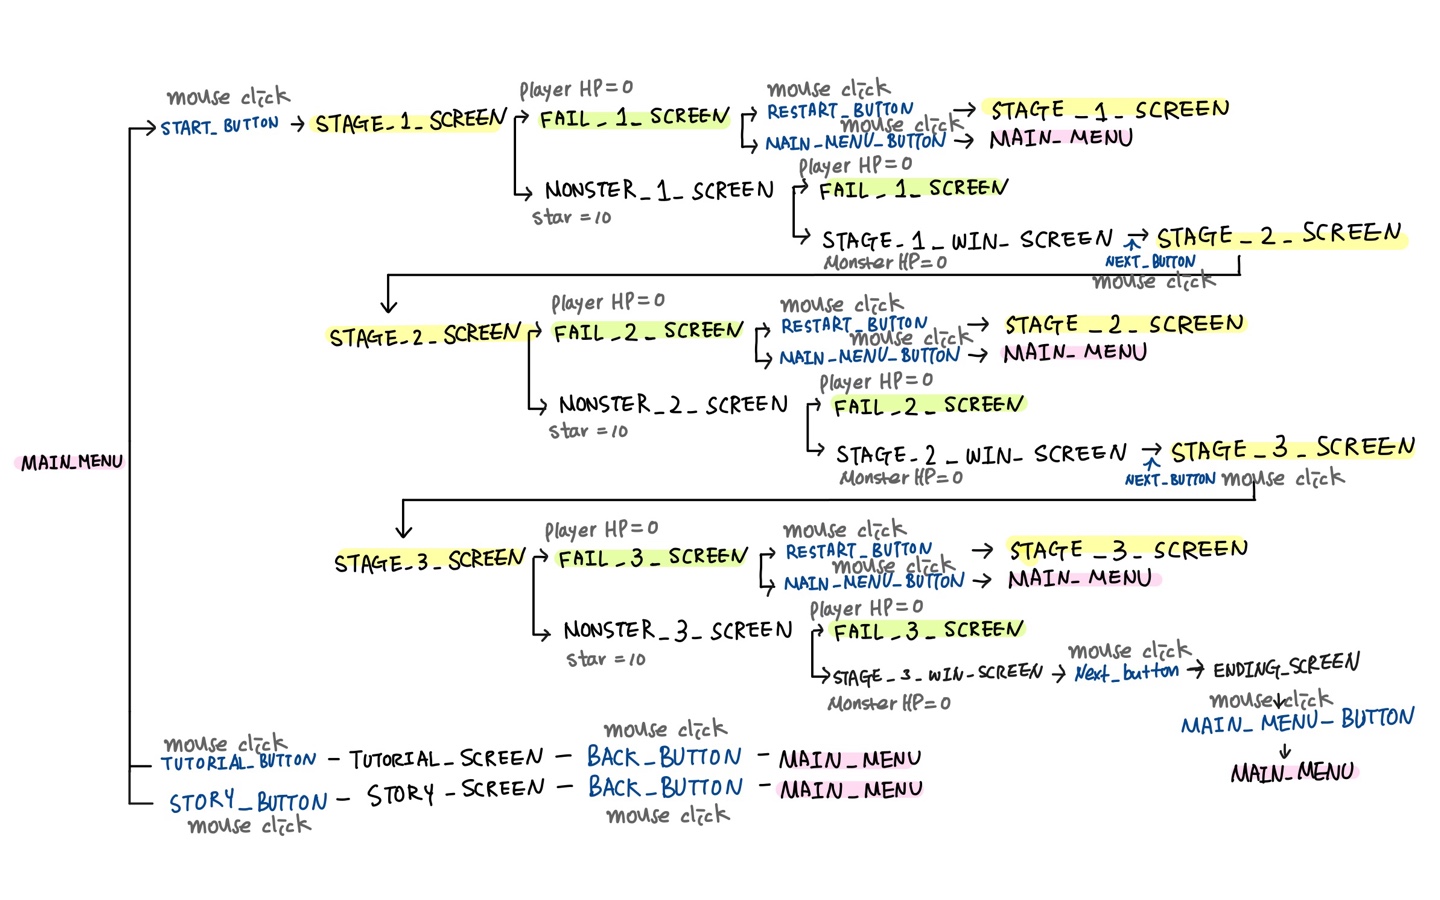 mouse click
START_BUTTON → STAGE_1_SCREEN
Player HP=0
FAIL_1_SCREEN
mouse click
RESTART_BUTTON → STAGE_1_SCREEN
mouse click
MAIN_MENU_BUTTON → MAIN_MENU
MONSTER_1_SCREEN
Star=10
Player HP=0
FAIL_1_SCREEN
STAGE_1_WIN_SCREEN → STAGE_2_SCREEN
Monster HP=0
NEXT_BUTTON
mouse click
STAGE_2_SCREEN
Player HP=0
FAIL_2_SCREEN
mouse click
RESTART_BUTTON → STAGE_2_SCREEN
mouse click
MAIN_MENU_BUTTON → MAIN_MENU
MONSTER_2_SCREEN
Star=10
Player HP=0
FAIL_2_SCREEN
STAGE_2_WIN_SCREEN → STAGE_3_SCREEN
Monster HP=0
NEXT_BUTTON mouse click
MAIN_MENU
STAGE_3_SCREEN
Player HP=0
FAIL_3_SCREEN
mouse click
RESTART_BUTTON → STAGE_3_SCREEN
mouse click
MAIN_MENU_BUTTON → MAIN_MENU
MONSTER_3_SCREEN
Star=10
Player HP=0
FAIL_3_SCREEN
mouse click
STAGE_3_WIN_SCREEN → Next_button → ENDING_SCREEN
Monster HP=0
mouse click
MAIN_MENU_BUTTON
MAIN_MENU
mouse click
mouse click
TUTORIAL_BUTTON - TUTORIAL_SCREEN - BACK_BUTTON - MAIN_MENU
STORY_BUTTON - STORY_SCREEN - BACK_BUTTON - MAIN_MENU
mouse click
mouse click